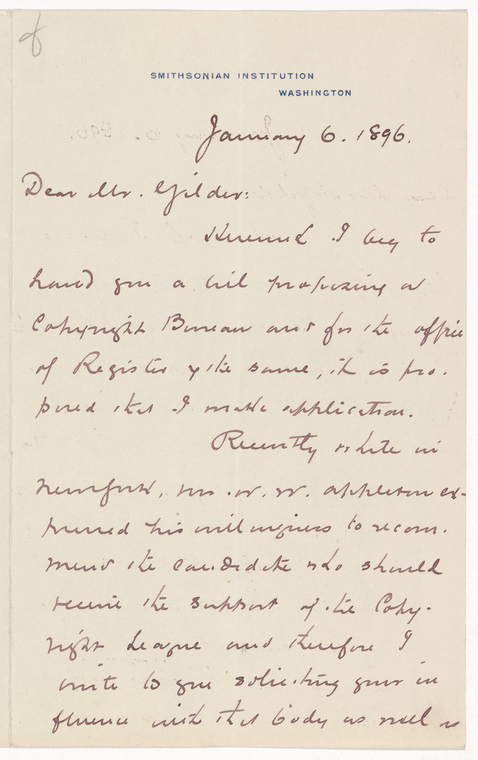 SMITHSONIAN INSTITUTION
WASHINGTON
January 6. 1896.
Dear Mr. Gilder:
Herewith I beg to
hand you a bill proposing a
Copyright Bureau and for the office
of Register of the same, it is pro-
posed that I make application.
Recently while in
New York, Mr. W. W. Appleton ex-
pressed his willingness to recom-
mend the candidate who should
receive the support of the Copy-
right League and therefore I
write to you soliciting your in
fluence with that body as well as